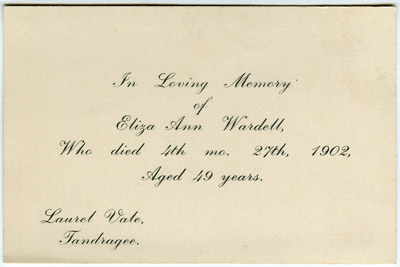 In Loving Memory
of
Eliza Ann Wardell,
Who died 4th mo. 27th, 1902,
Aged 49 years.
Laurel Vale,
Tandragee.